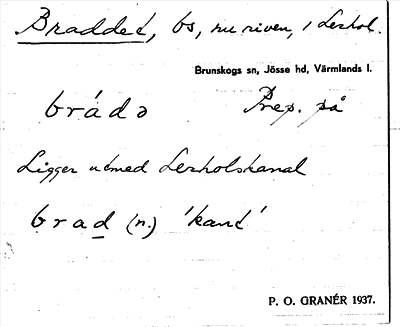 Braddet, bs, nu riven, i Lerhol.
Brunskogs sn, Jösse hd, Värmlands l.
brádə Prep. på
Ligger utmed Lerholskanal
brad (n.) 'kant'
P. O. GRANÉR 1937.